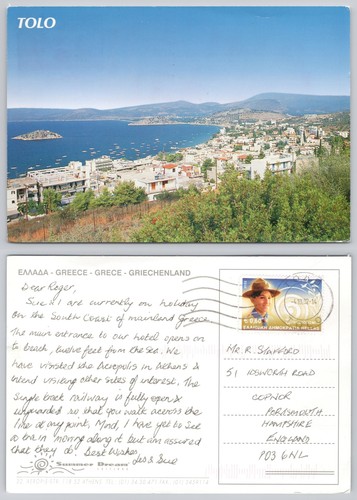 TOLO
ΕΛΛΑΔΑ - GREECE - GRECE - GRIECHENLAND
Dear Roger,
Sue & I are currently on holiday
on the South Coast of mainland Greece
The main entrance to our hotel opens on
to beach, twelve feet from the sea. We
have visited the Acropolis in Athens &
intend visiting other sites of interest. The
single track railway is fully open &
unguarded so that you walk across the
line at any point, Mind, I have yet to see
a train moving along it but am assured
that they do. Best Wishes
Les & Sue
Summer Dream
ΕΛΛΗΝΙΚΗ ΔΗΜΟΚΡΑΤΙΑ HELLAS
MR. R. STAFFORD
51 IDSWORTH ROAD
COPNOR
PORTSMOUTH
HAMPSHIRE
ENGLAND
PO3 6NL